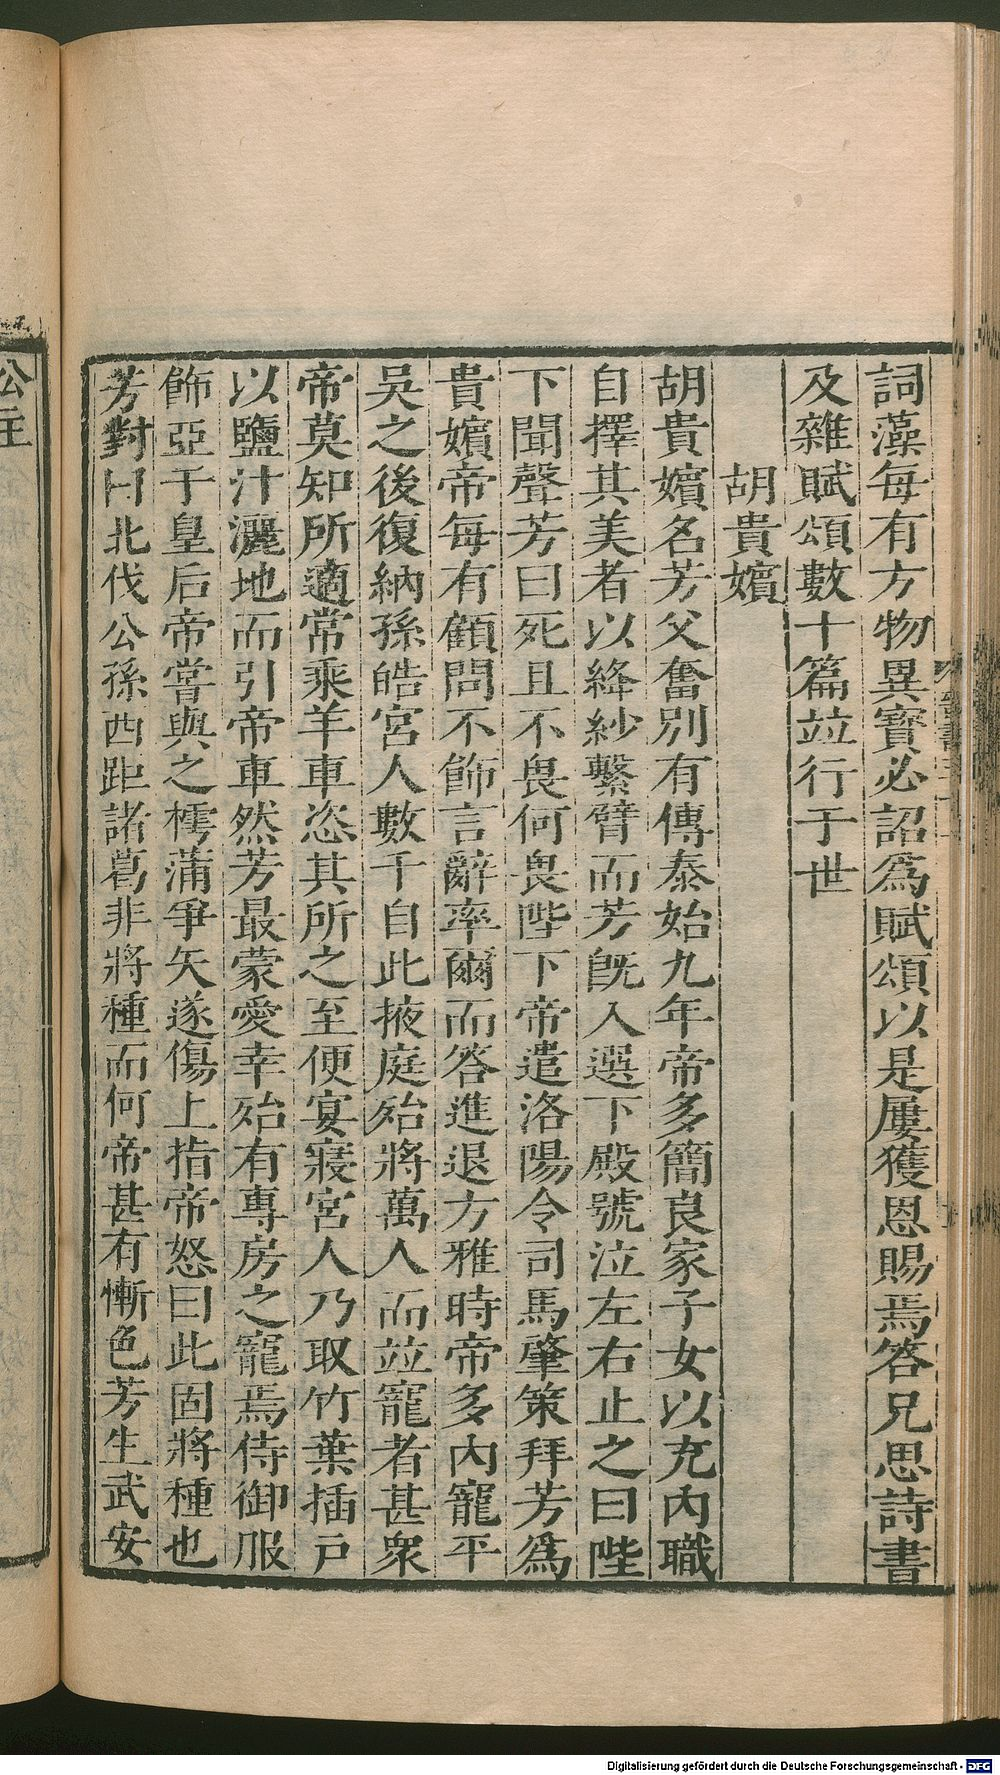 詞藻每有方物異寶必詔爲賦頌以是屢獲恩賜焉答兄思詩書
及雜賦頌數十篇竝行于世
胡貴嬪
胡貴嬪名芳父奮別有傳泰始九年帝多簡良家子女以充內職
自擇其美者以絳紗繫臂而芳旣入選下殿號泣左右止之曰陛
下聞聲芳曰死且不畏何畏陛下帝遣洛陽令司馬肇策拜芳爲
貴嬪帝每有顧問不飾言辭率爾而答進退方雅時帝多內寵平
吳之後復納孫皓宮人數千自此掖庭殆將萬人而竝寵者甚衆
帝莫知所適常乘羊車恣其所之至便宴寢宮人乃取竹葉插戸
以鹽汁灑地而引帝車然芳最蒙愛幸殆有專房之寵焉侍御服
飾亞于皇后帝嘗與之樗蒲爭矢遂傷上指帝怒曰此固將種也
芳對曰北伐公孫西距諸葛非將種而何帝甚有慚色芳生武安
公主
Digitalisierung gefördert durch die Deutsche Forschungsgemeinschaft - DFG